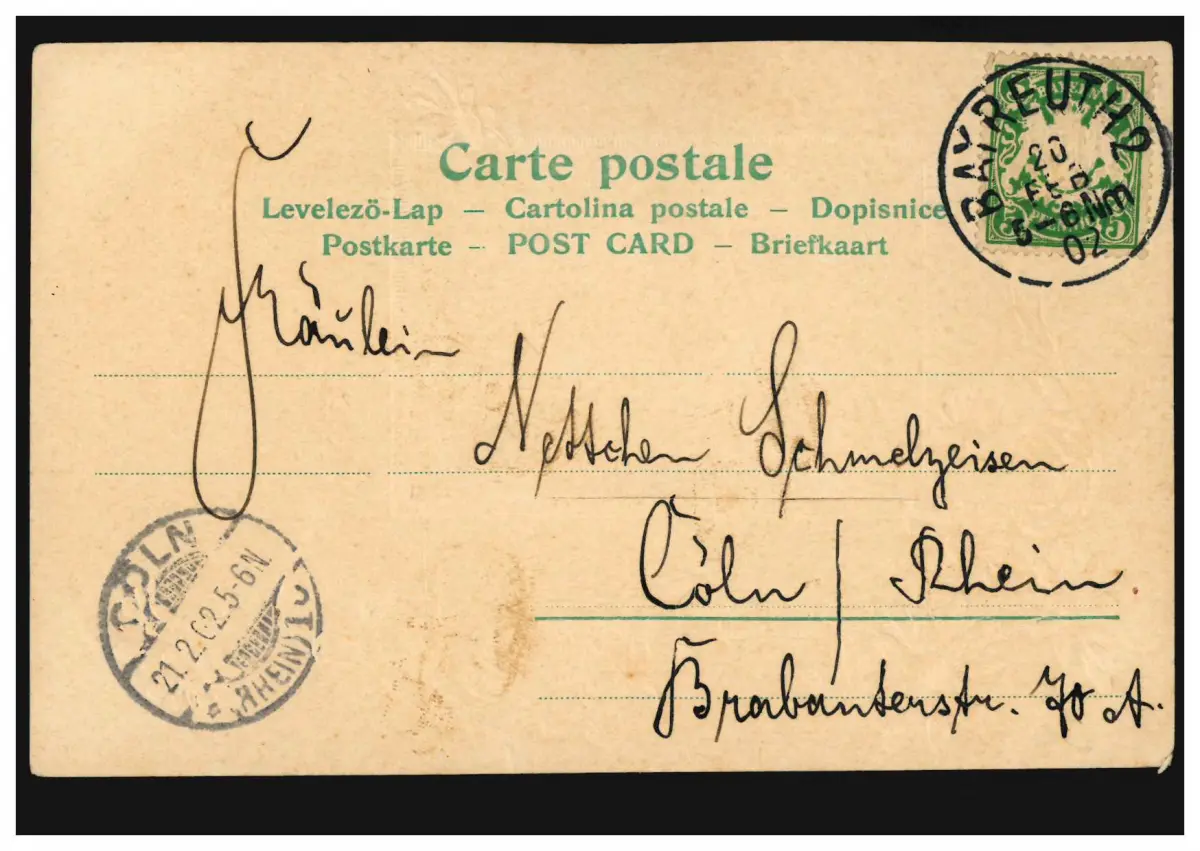 Carte postale
Levelező-Lap – Cartolina postale – Dopisnice
Postkarte – POST CARD – Briefkaart
BAYREUTH 2
20
FEB
5–6 Nm
02
Fräulein
Nettchen Schmelzeisen
Cöln / Rhein
Brabanterstr. 70 A.
CÖLN
21.2.02.5-6N.
(RHEIN)